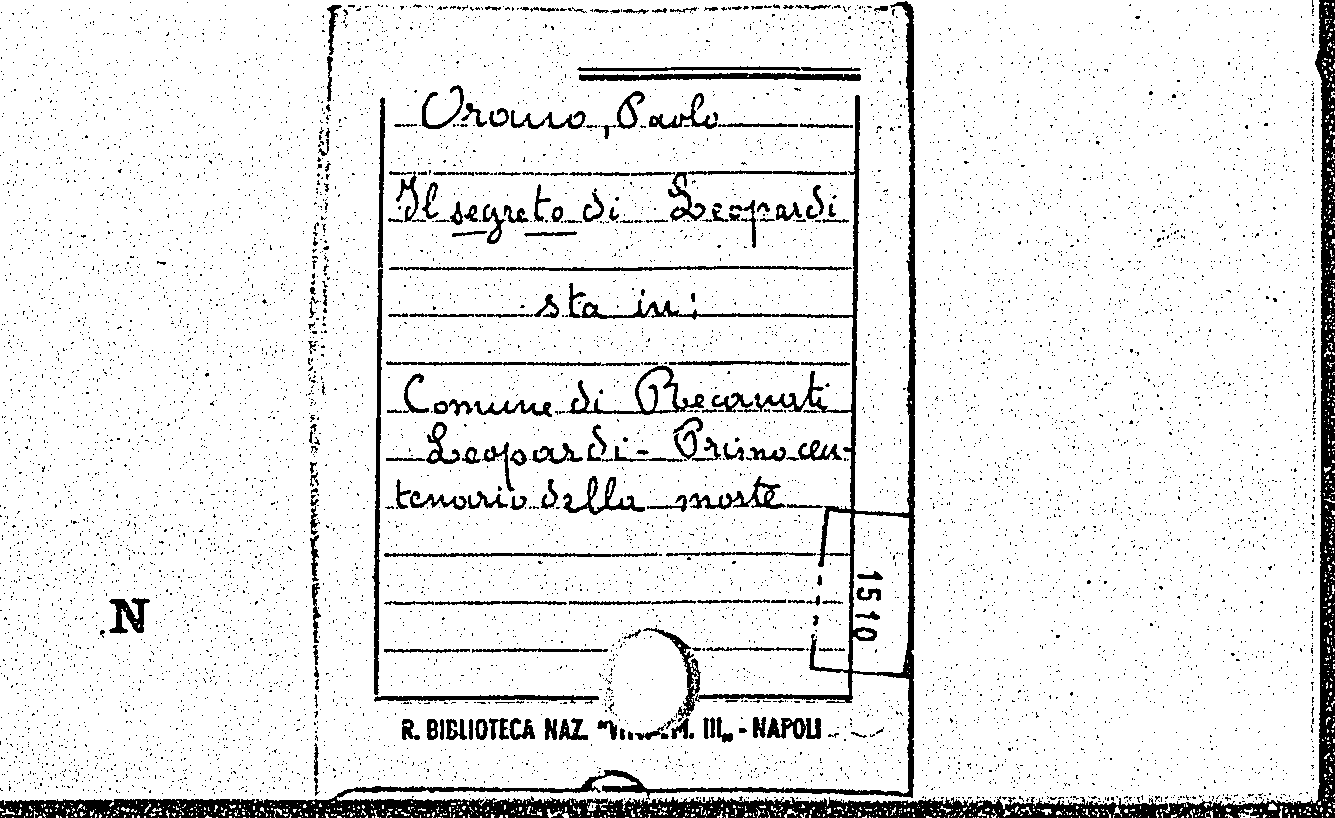 Orano, Paolo
Il segreto di Leopardi
sta in:
Comune di Recanati
Leopardi - Primo cen-
tenario della morte
1510
N
R. BIBLIOTECA NAZ. III„ - NAPOLI